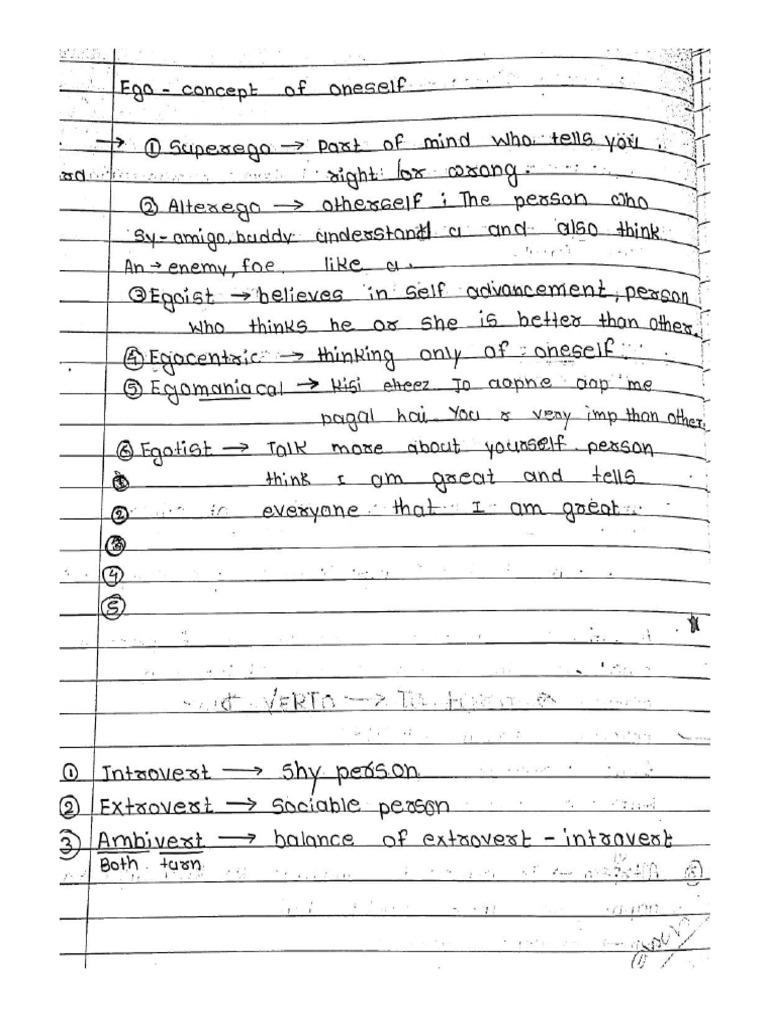 Ego - concept of oneself
→ ① Superego → Part of mind who tells you
right or wrong.
② Alterego → otherself ; The person who
Sy - amigo, buddy understand u and also think
An → enemy, foe like u.
③ Egoist → believes in self advancement, person
who thinks he or she is better than other.
④ Egocentric → thinking only of oneself.
⑤ Egomaniacal → kisi cheez Jo aapne aap me
pagal hai You r very imp than other.
⑥ Egotist → Talk more about yourself person
① think I am great and tells
② everyone that I am great
③
④
⑤
VERTO →
① Introvert → Shy person
② Extrovert → Sociable person
③ Ambivert → balance of extrovert - introvert
Both turn